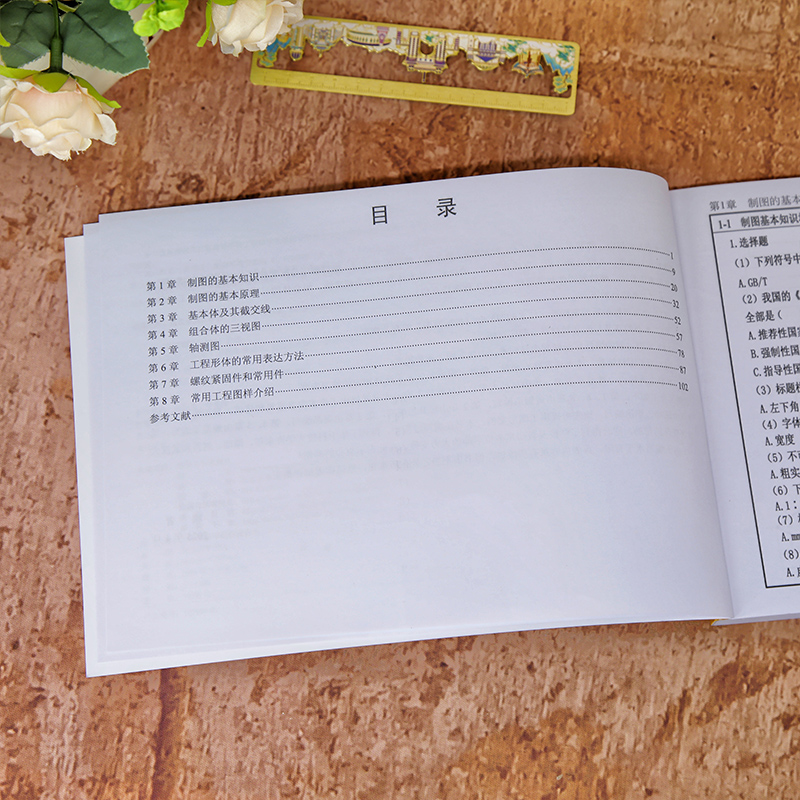 目 录
第 1 章 制图的基本知识 1
第 2 章 制图的基本原理 9
第 3 章 基本体及其截交线 20
第 4 章 组合体的三视图 32
第 5 章 轴测图 52
第 6 章 工程形体的常用表达方法 57
第 7 章 螺纹紧固件和常用件 76
第 8 章 常用工程图样介绍 87
参考文献 102
第1章 制图的基本
1-1 制图基本知识
1.选择题
(1) 下列符号中
A.GB/T
(2) 我国的《
全部是(
A.推荐性国
B.强制性国
C.指导性国
(3) 标题
A.左下角
(4) 字体
A.宽度
(5) 不
A.粗实
(6) 下
A.1:
(7)
A.mm
(8)
A.